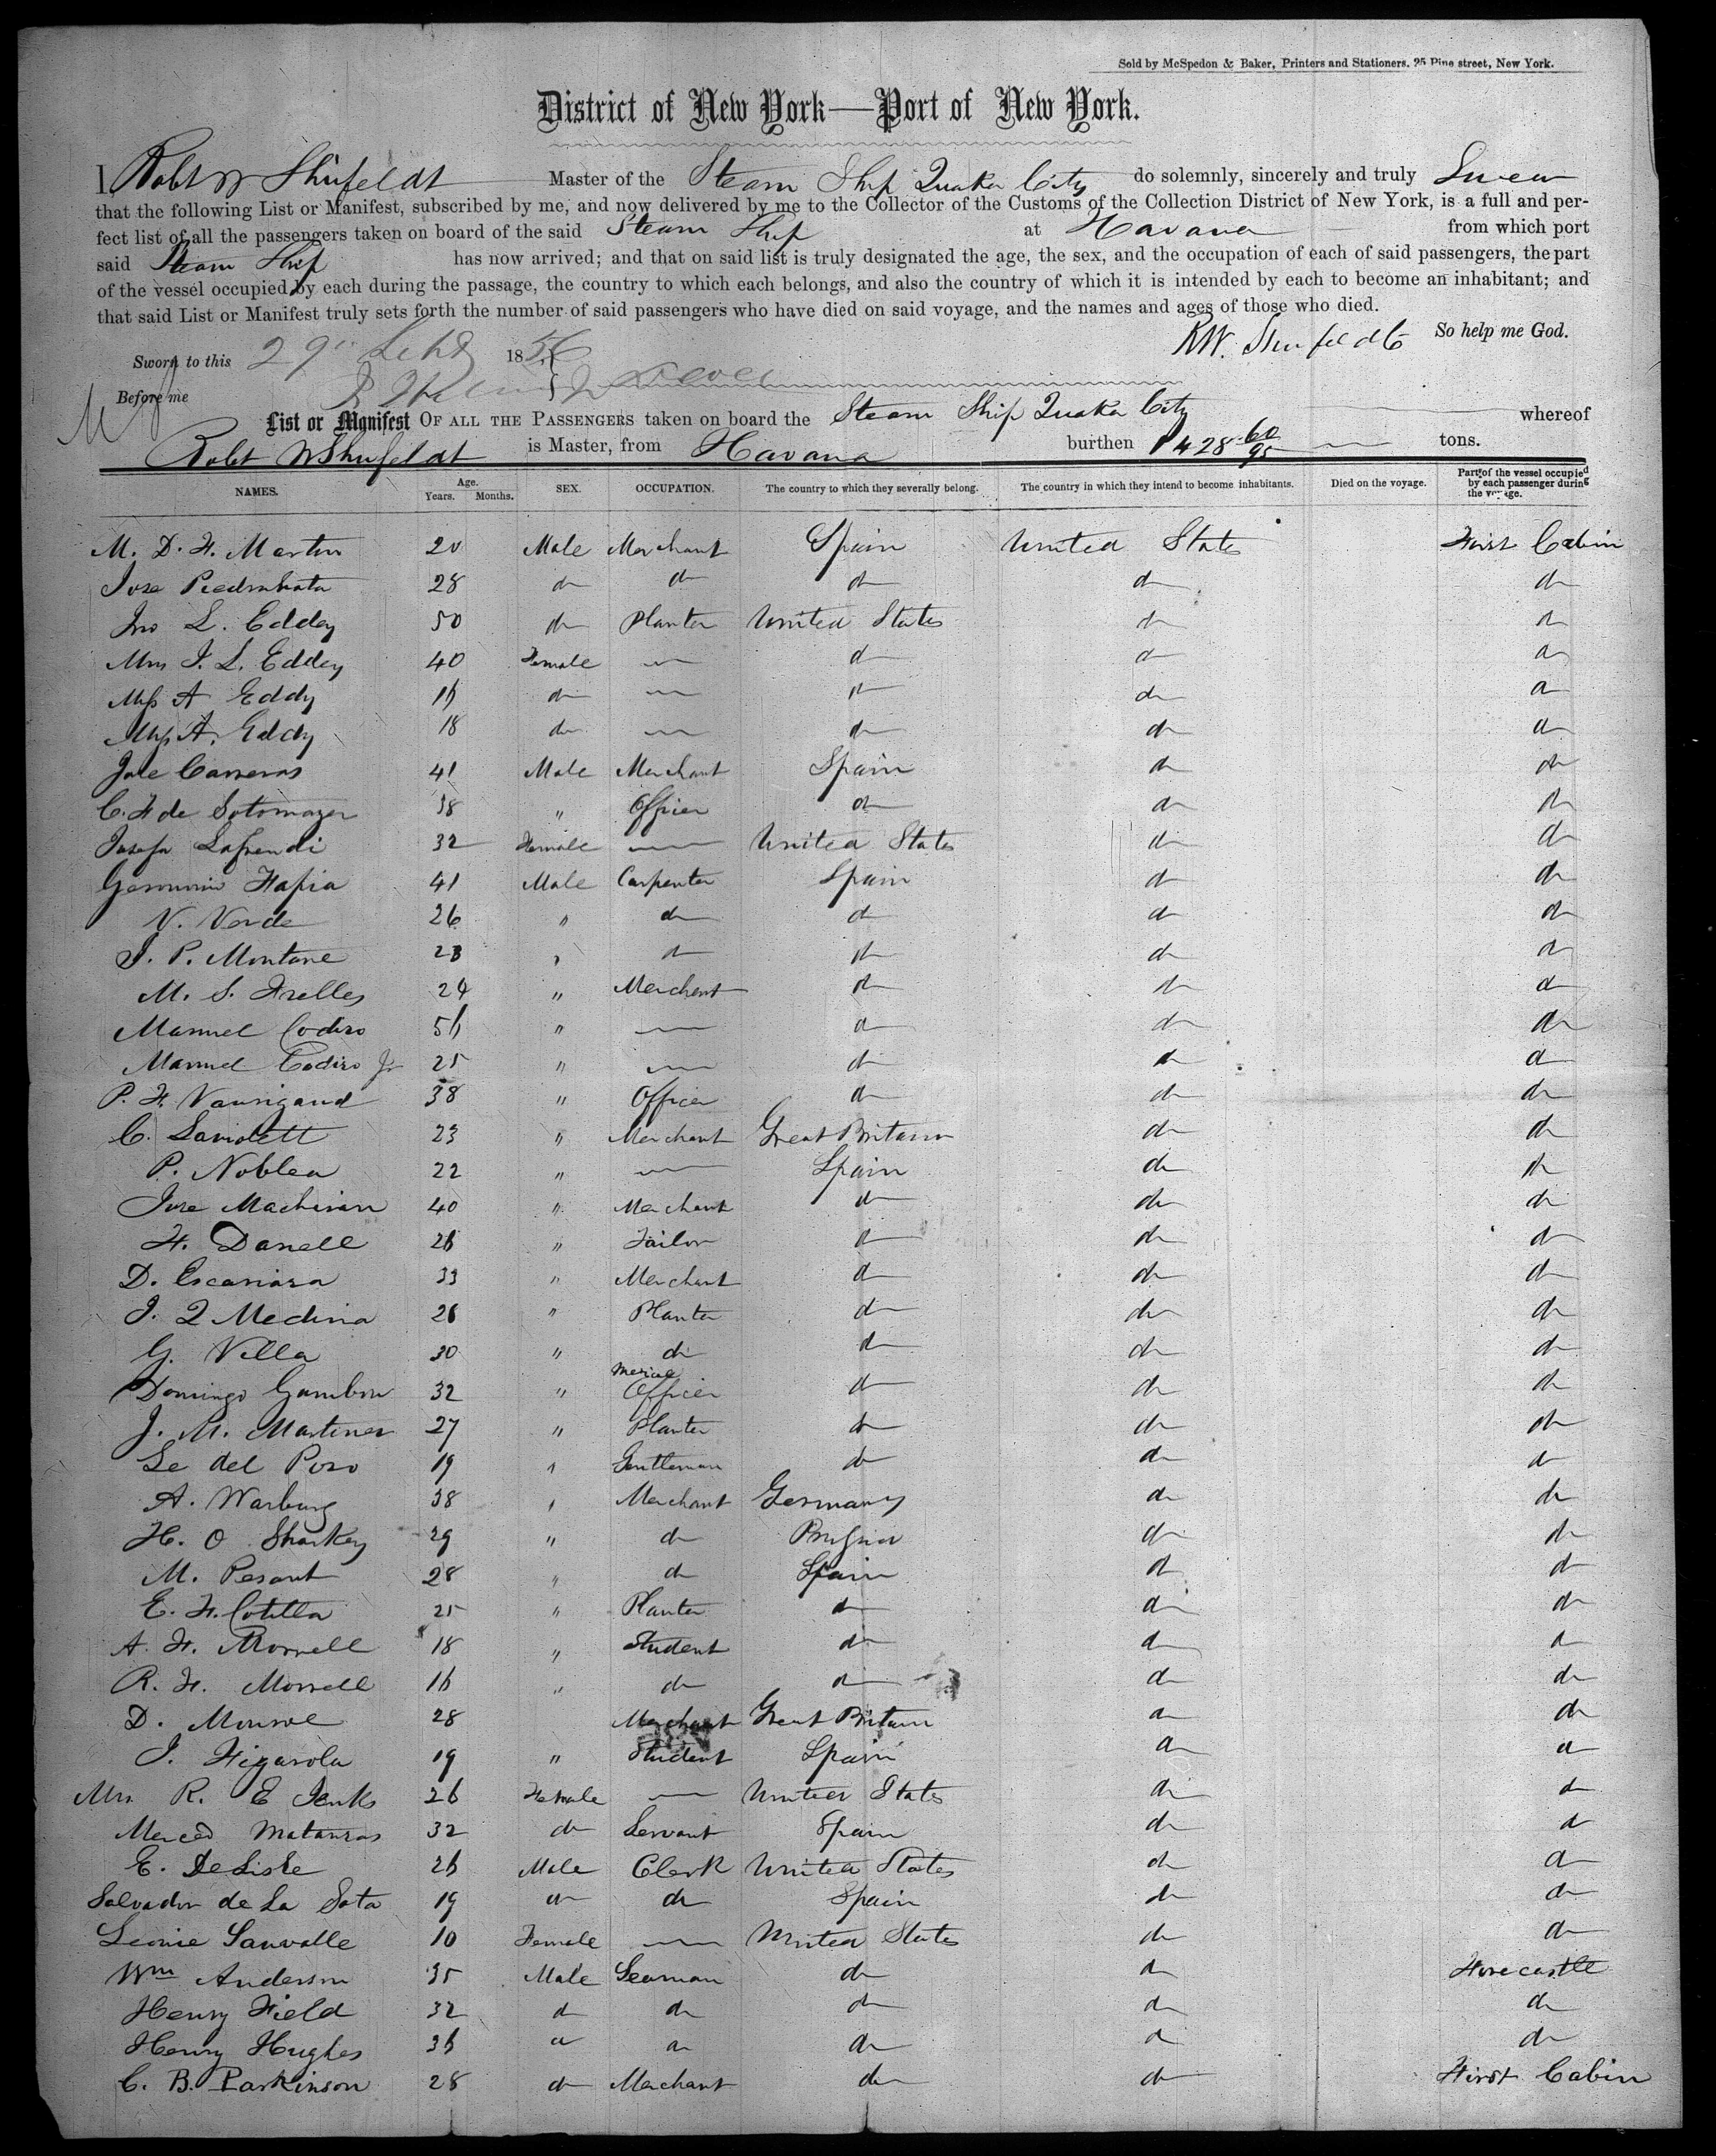 Sold by McSpedon & Baker, Printers and Stationers. 25 Pine street, New York.
District of New York—Port of New York.
I Robt W Shufeldt Master of the Steam Ship Quaker City do solemnly, sincerely and truly Swear
that the following List or Manifest, subscribed by me, and now delivered by me to the Collector of the Customs of the Collection District of New York, is a full and per-
fect list of all the passengers taken on board of the said Steam Ship at Havana from which port
said Steam Ship has now arrived; and that on said list is truly designated the age, the sex, and the occupation of each of said passengers, the part
of the vessel occupied by each during the passage, the country to which each belongs, and also the country of which it is intended by each to become an inhabitant; and
that said List or Manifest truly sets forth the number of said passengers who have died on said voyage, and the names and ages of those who died.
R.W. Shufeldt So help me God.
Sworn to this 29th Sept 1856
Before me
List or Manifest OF ALL THE PASSENGERS taken on board the Steam Ship Quaker City whereof
Robt W Shufeldt is Master, from Havana burthen 1428 60/95 tons.
NAMES. Age. Years. Months. SEX. OCCUPATION. The country to which they severally belong. The country in which they intend to become inhabitants. Died on the voyage. Part of the vessel occupied by each passenger during the voyage.
M. D. F. Martin 20 Male Merchant Spain United States First Cabin
Jose Piedrahata 28 do do do do do
Jno L. Eddey 50 do Planter United States do do
Mrs J. L. Eddey 40 Female — do do do
Miss A Eddy 16 do — do do do
Miss A. Eddy 18 do — do do do
Jose Carreras 41 Male Merchant Spain do do
C. F de Sotomayer 38 " Officer do do do
Josefa 32 Female — United States do do
Tapia 41 Male Carpenter Spain do do
V. Verde 26 " do do do do
J. P. Montane 23 " do do do do
M. S. Trelles 24 " Merchant do do do
Manuel Codiro 56 " — do do do
Manuel Codiro Jr 25 " — do do do
P. F. Vaurigaud 38 " Officer do do do
C. 23 " Merchant Great Britain do do
P. Noblea 22 " — Spain do do
Jose Machivan 40 " Merchant do do do
F. Danell 26 " Tailor do do do
D. Escariaza 33 " Merchant do do do
J. Q Medina 26 " Planter do do do
G. Villa 30 " do do do do
Domingo Gambon 32 " Officer do do do
J. M. Martinez 27 " Planter do do do
Le del Poso 19 " Gentleman do do do
A. Warburg 38 " Merchant Germany do do
H. O Sharkey 29 " do Prussia do do
M. Pesant 28 " do Spain do do
E. F. Cotilla 25 " Planter do do do
A. F. Morrell 18 " Student do do do
R. F. Morrell 16 " do do do do
D. Monroe 28 Merchant Great Britain do do
J. Figarola 19 " Student Spain do do
Mrs R. E Jenks 26 Female — United States do do
Merced Matanzas 32 do Servant Spain do do
E. DeLisle 26 Male Clerk United States do do
Salvador de La Sota 19 do do Spain do do
Leonie Sauvalle 10 Female — United States do do
Wm Anderson 35 Male Seaman do do Forecastle
Henry Field 32 do do do do do
Henry Hughes 36 do do do do do
C. B. Parkinson 28 do Merchant do do First Cabin